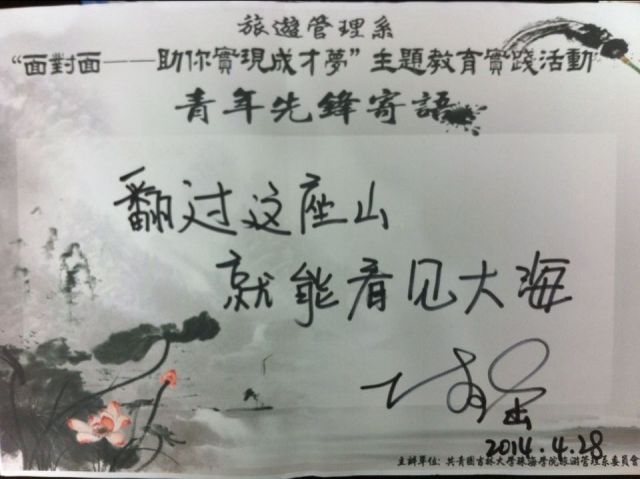 旅遊管理系
“面對面——助你實現成才夢”主題教育實踐活動
青年先鋒寄語
翻过这座山
就能看见大海
2014.4.28
主辦單位：共青團吉林大學珠海學院旅游管理系委員會